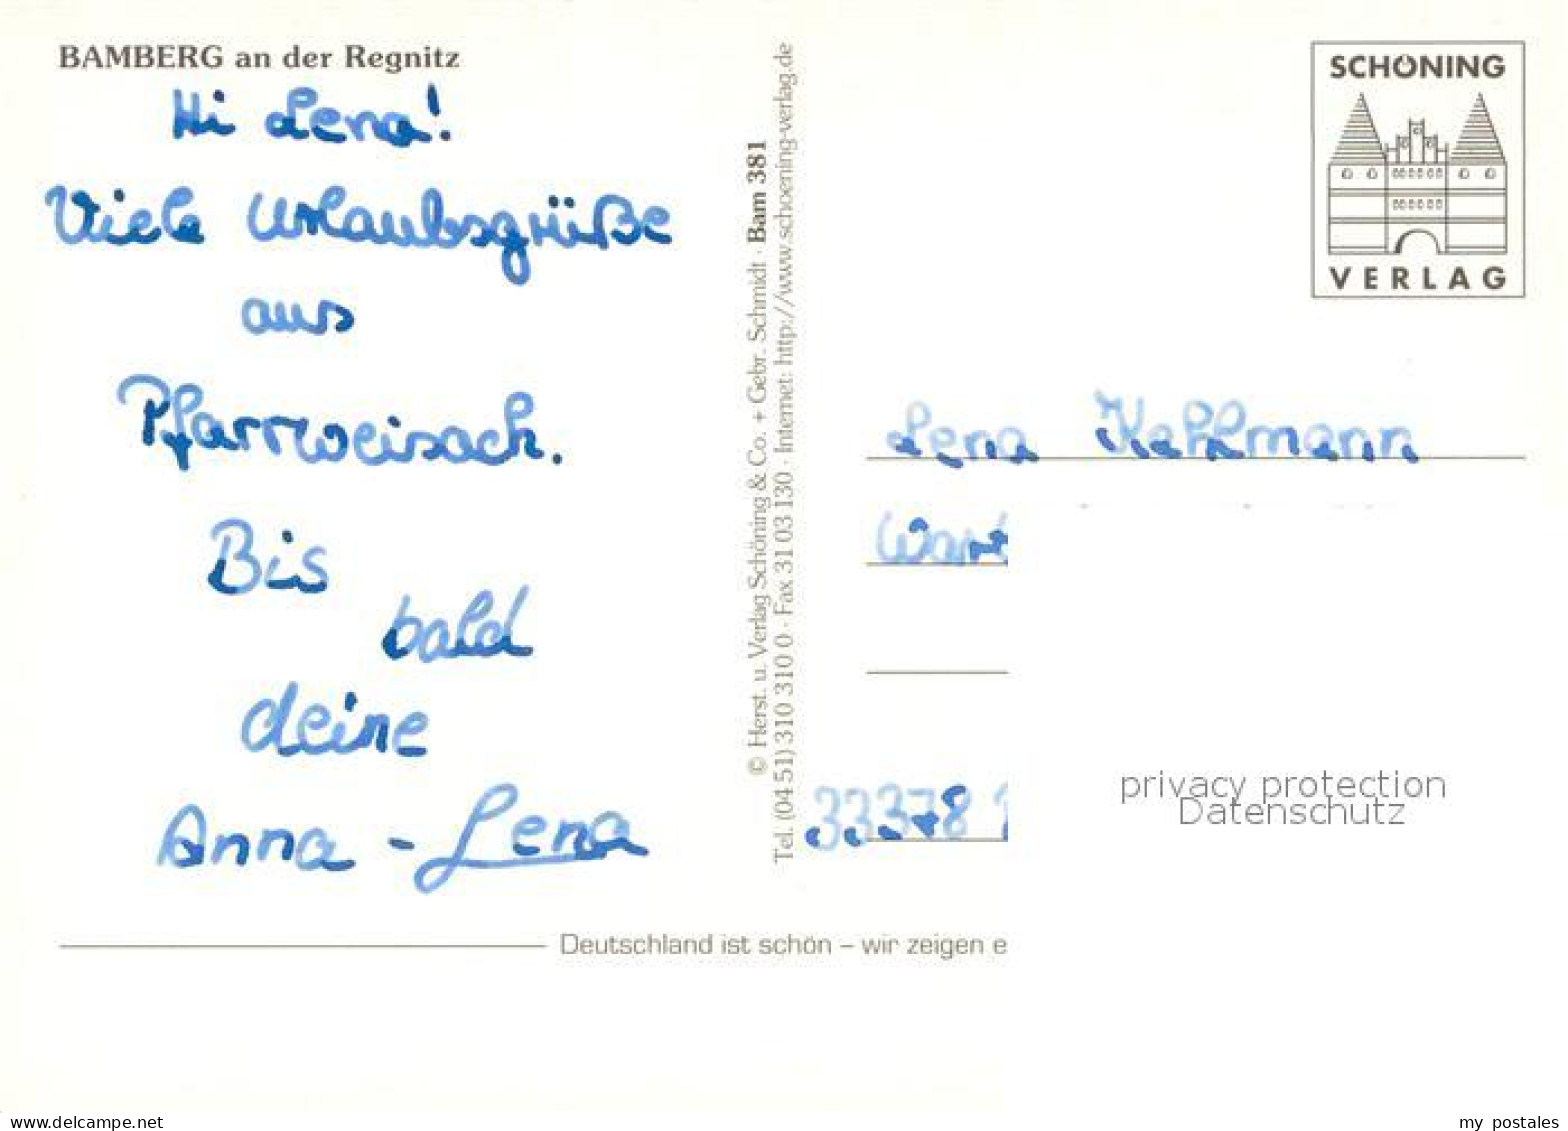 BAMBERG an der Regnitz
Hi Lena!
Viele Urlaubsgrüße
aus
Pfarrweisach.
Bis
bald
deine
Anna - Lena
© Herst. u. Verlag Schöning & Co. + Gebr. Schmidt · Bam 381
Tel. (04 51) 310 310 0 · Fax 31 03 130 · Internet: http://www.schoening-verlag.de
SCHÖNING
VERLAG
Lena Kehlmann
33378
privacy protection
Datenschutz
Deutschland ist schön – wir zeigen e
www.delcampe.net
my_postales